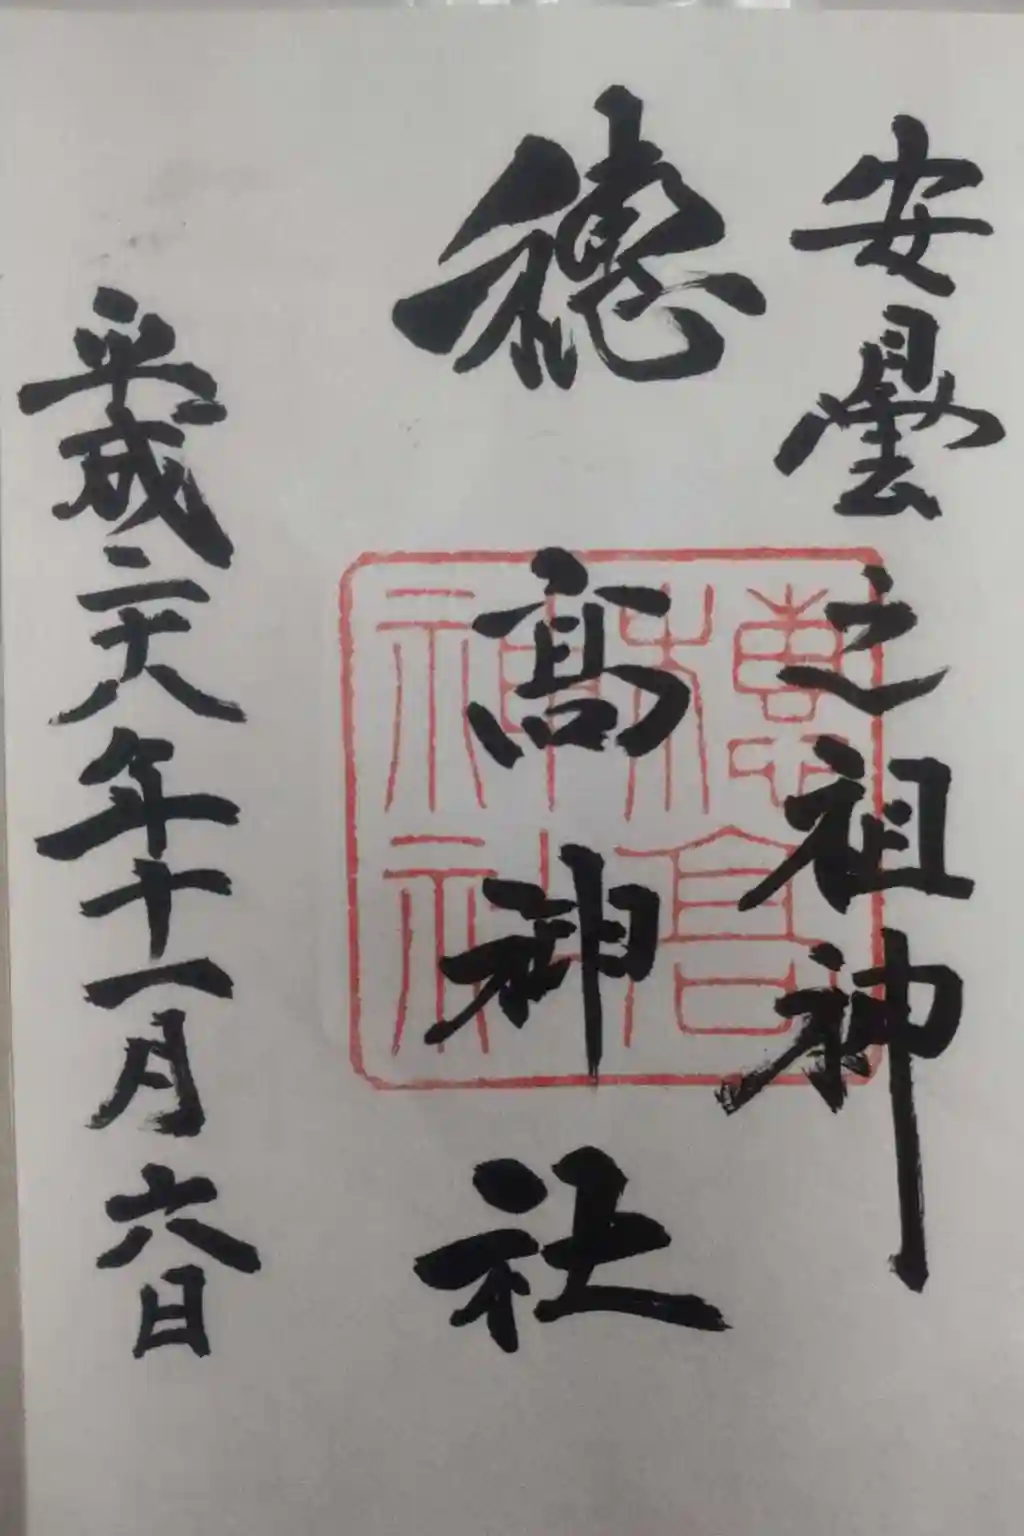 安曇之祖神
穗髙神社
平成二十八年十一月六日
穗髙
神社